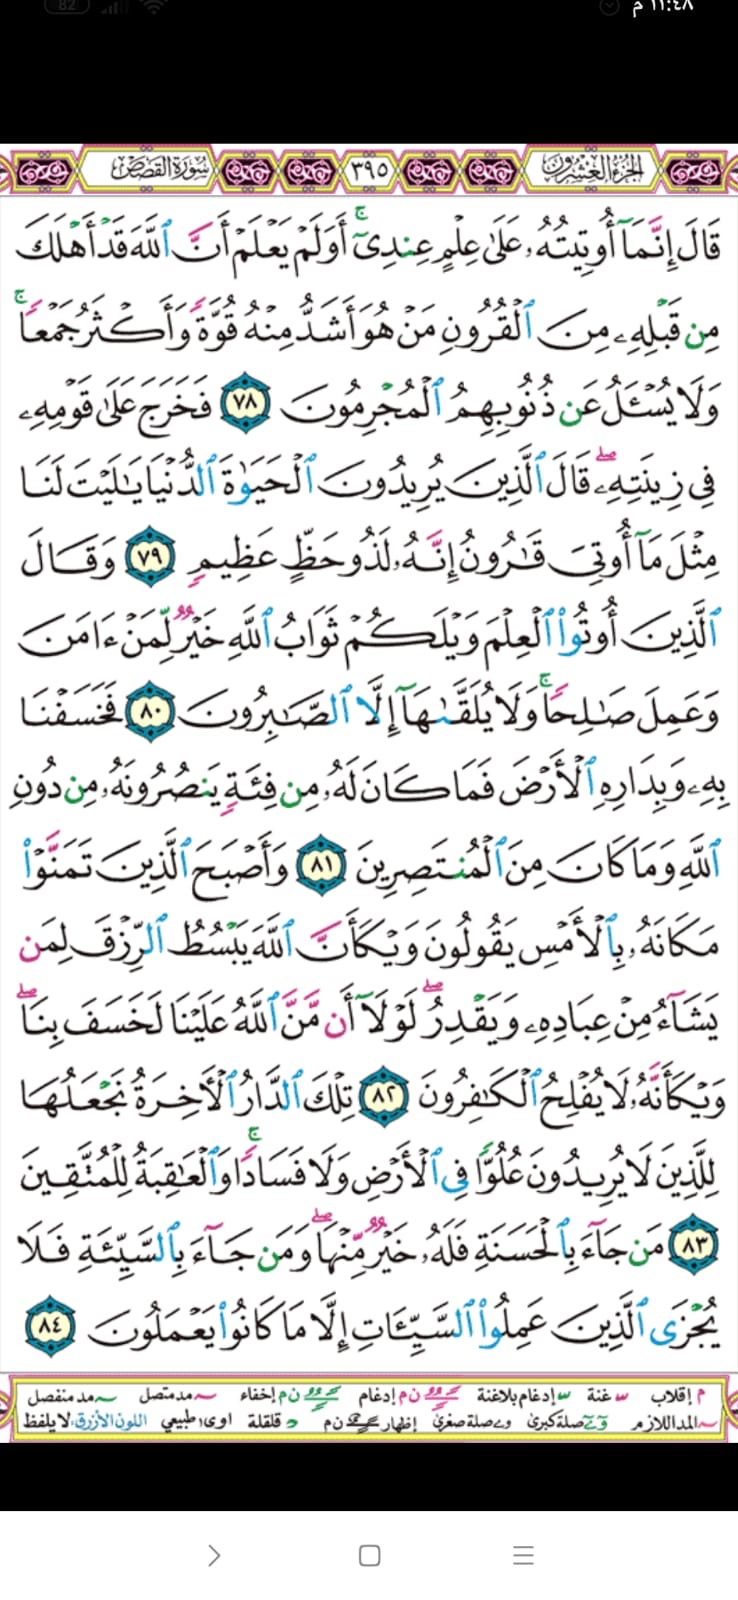 ١١:٤٨ م
82
الجزء العشرون
٣٩٥
سورة القصص
قَالَ إِنَّمَآ أُوتِيتُهُۥ عَلَىٰ عِلْمٍ عِندِىٓ ۚ أَوَلَمْ يَعْلَمْ أَنَّ ٱللَّهَ قَدْ أَهْلَكَ
مِن قَبْلِهِۦ مِنَ ٱلْقُرُونِ مَنْ هُوَ أَشَدُّ مِنْهُ قُوَّةً وَأَكْثَرُ جَمْعًا ۚ
وَلَا يُسْـَٔلُ عَن ذُنُوبِهِمُ ٱلْمُجْرِمُونَ ٧٨ فَخَرَجَ عَلَىٰ قَوْمِهِۦ
فِى زِينَتِهِۦ ۖ قَالَ ٱلَّذِينَ يُرِيدُونَ ٱلْحَيَوٰةَ ٱلدُّنْيَا يَـٰلَيْتَ لَنَا
مِثْلَ مَآ أُوتِىَ قَـٰرُونُ إِنَّهُۥ لَذُو حَظٍّ عَظِيمٍ ٧٩ وَقَالَ
ٱلَّذِينَ أُوتُوا۟ ٱلْعِلْمَ وَيْلَكُمْ ثَوَابُ ٱللَّهِ خَيْرٌ لِّمَنْ ءَامَنَ
وَعَمِلَ صَـٰلِحًا ۚ وَلَا يُلَقَّىٰهَآ إِلَّا ٱلصَّـٰبِرُونَ ٨٠ فَخَسَفْنَا
بِهِۦ وَبِدَارِهِ ٱلْأَرْضَ فَمَا كَانَ لَهُۥ مِن فِئَةٍ يَنصُرُونَهُۥ مِن دُونِ
ٱللَّهِ وَمَا كَانَ مِنَ ٱلْمُنتَصِرِينَ ٨١ وَأَصْبَحَ ٱلَّذِينَ تَمَنَّوْا۟
مَكَانَهُۥ بِٱلْأَمْسِ يَقُولُونَ وَيْكَأَنَّ ٱللَّهَ يَبْسُطُ ٱلرِّزْقَ لِمَن
يَشَآءُ مِنْ عِبَادِهِۦ وَيَقْدِرُ ۖ لَوْلَآ أَن مَّنَّ ٱللَّهُ عَلَيْنَا لَخَسَفَ بِنَا ۖ
وَيْكَأَنَّهُۥ لَا يُفْلِحُ ٱلْكَـٰفِرُونَ ٨٢ تِلْكَ ٱلدَّارُ ٱلْـَٔاخِرَةُ نَجْعَلُهَا
لِلَّذِينَ لَا يُرِيدُونَ عُلُوًّا فِى ٱلْأَرْضِ وَلَا فَسَادًا ۚ وَٱلْعَـٰقِبَةُ لِلْمُتَّقِينَ
٨٣ مَن جَآءَ بِٱلْحَسَنَةِ فَلَهُۥ خَيْرٌ مِّنْهَا ۖ وَمَن جَآءَ بِٱلسَّيِّئَةِ فَلَا
يُجْزَى ٱلَّذِينَ عَمِلُوا۟ ٱلسَّيِّـَٔاتِ إِلَّا مَا كَانُوا۟ يَعْمَلُونَ ٨٤
م إقلاب ّ غنة ّ إدغام بلاغنة ن م إدغام ن م إخفاء ~ مد متصل ~ مد منفصل
~ المد اللازم صلة كبرى و ے صلة صغرى إظهار ن م قلقلة ا و ى طبيعي اللون الأزرق لا يلفظ